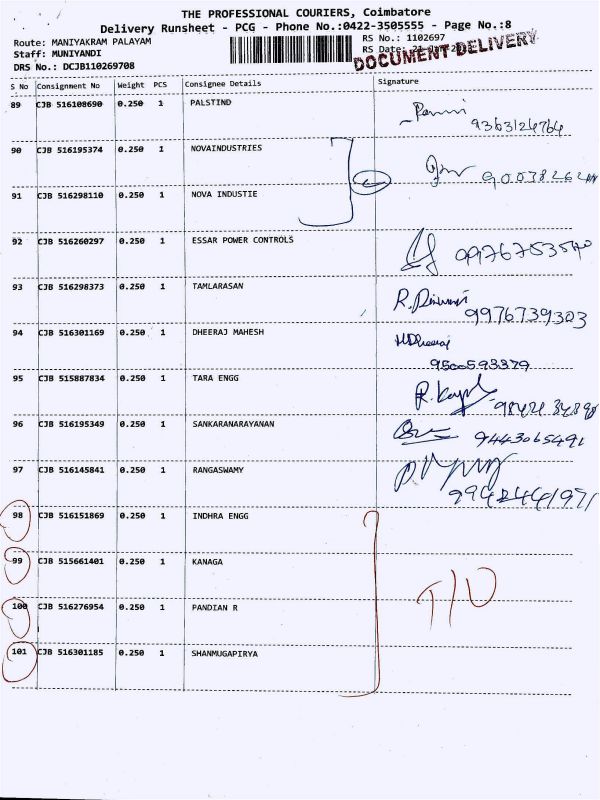 THE PROFESSIONAL COURIERS, Coimbatore
Delivery Runsheet - PCG - Phone No.:0422-3505555 - Page No.:8
Route: MANIYAKRAM PALAYAM
RS No.: 1102697
Staff: MUNIYANDI
RS Date:
DOCUMENT DELIVERY
DRS No.: DCJB110269708
S No Consignment No Weight PCS Consignee Details Signature
89 CJB 516108690 0.250 1 PALSTIND
9363124764
90 CJB 516195374 0.250 1 NOVAINDUSTRIES
91 CJB 516298110 0.250 1 NOVA INDUSTIE
92 CJB 516260297 0.250 1 ESSAR POWER CONTROLS
93 CJB 516298373 0.250 1 TAMLARASAN
9976739303
94 CJB 516301169 0.250 1 DHEERAJ MAHESH
9500593379
95 CJB 515887834 0.250 1 TARA ENGG
96 CJB 516195349 0.250 1 SANKARANARAYANAN
9443065491
97 CJB 516145841 0.250 1 RANGASWAMY
98 CJB 516151869 0.250 1 INDHRA ENGG
99 CJB 515661401 0.250 1 KANAGA
T/O
100 CJB 516276954 0.250 1 PANDIAN R
101 CJB 516301185 0.250 1 SHANMUGAPIRYA